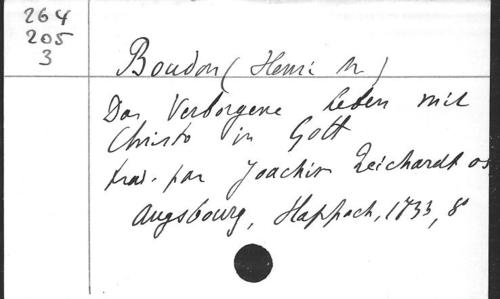 264
205
3
Boudon (Henri M)
Das Verborgene Leben mit
Christo in Gott
trad. par Joachim Reichardt os
Augsbourg, Happach, 1733, 8°